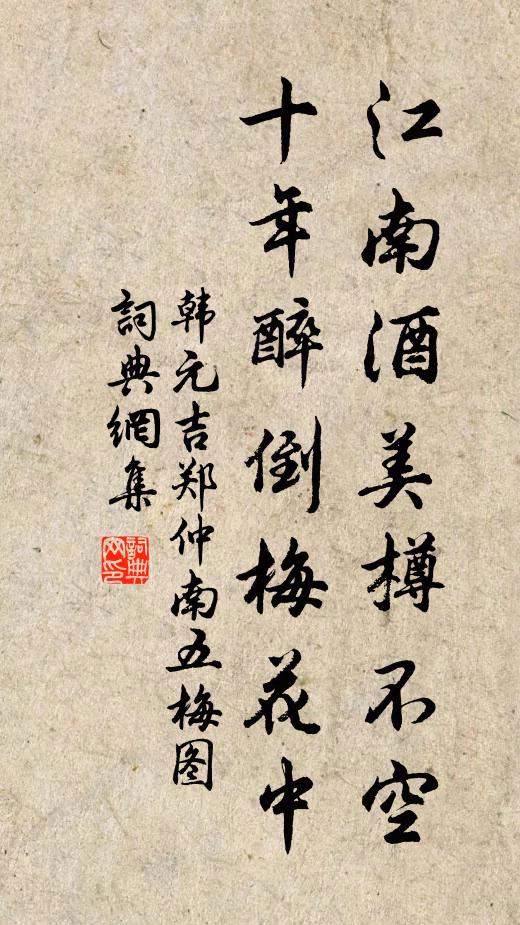 江南酒美樽不空
十年醉倒梅花中
韩元吉郑仲南五梅图
詞典網集
詞典网印